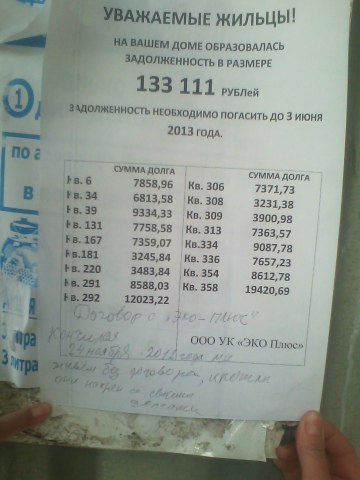 УВАЖАЕМЫЕ ЖИЛЬЦЫ!
НА ВАШЕМ ДОМЕ ОБРАЗОВАЛАСЬ
ЗАДОЛЖЕННОСТЬ В РАЗМЕРЕ
133 111 РУБЛей
ЗАДОЛЖЕННОСТЬ НЕОБХОДИМО ПОГАСИТЬ ДО 3 ИЮНЯ
2013 ГОДА.
СУММА ДОЛГА
Кв. 6 7858,96
Кв. 34 6813,58
Кв. 39 9334,33
Кв. 131 7758,58
Кв. 167 7359,07
Кв.181 3245,84
Кв. 220 3483,84
Кв. 291 8588,03
Кв. 292 12023,22
СУММА ДОЛГА
Кв. 306 7371,73
Кв. 308 3231,38
Кв. 309 3900,98
Кв. 313 7363,57
Кв.334 9087,78
Кв. 336 7657,23
Кв. 354 8612,78
Кв. 358 19420,69
ООО УК «ЭКО Плюс»
Договор с "Эко-плюс"
живем без договора,
они
1
по а
в
литра
3 литра